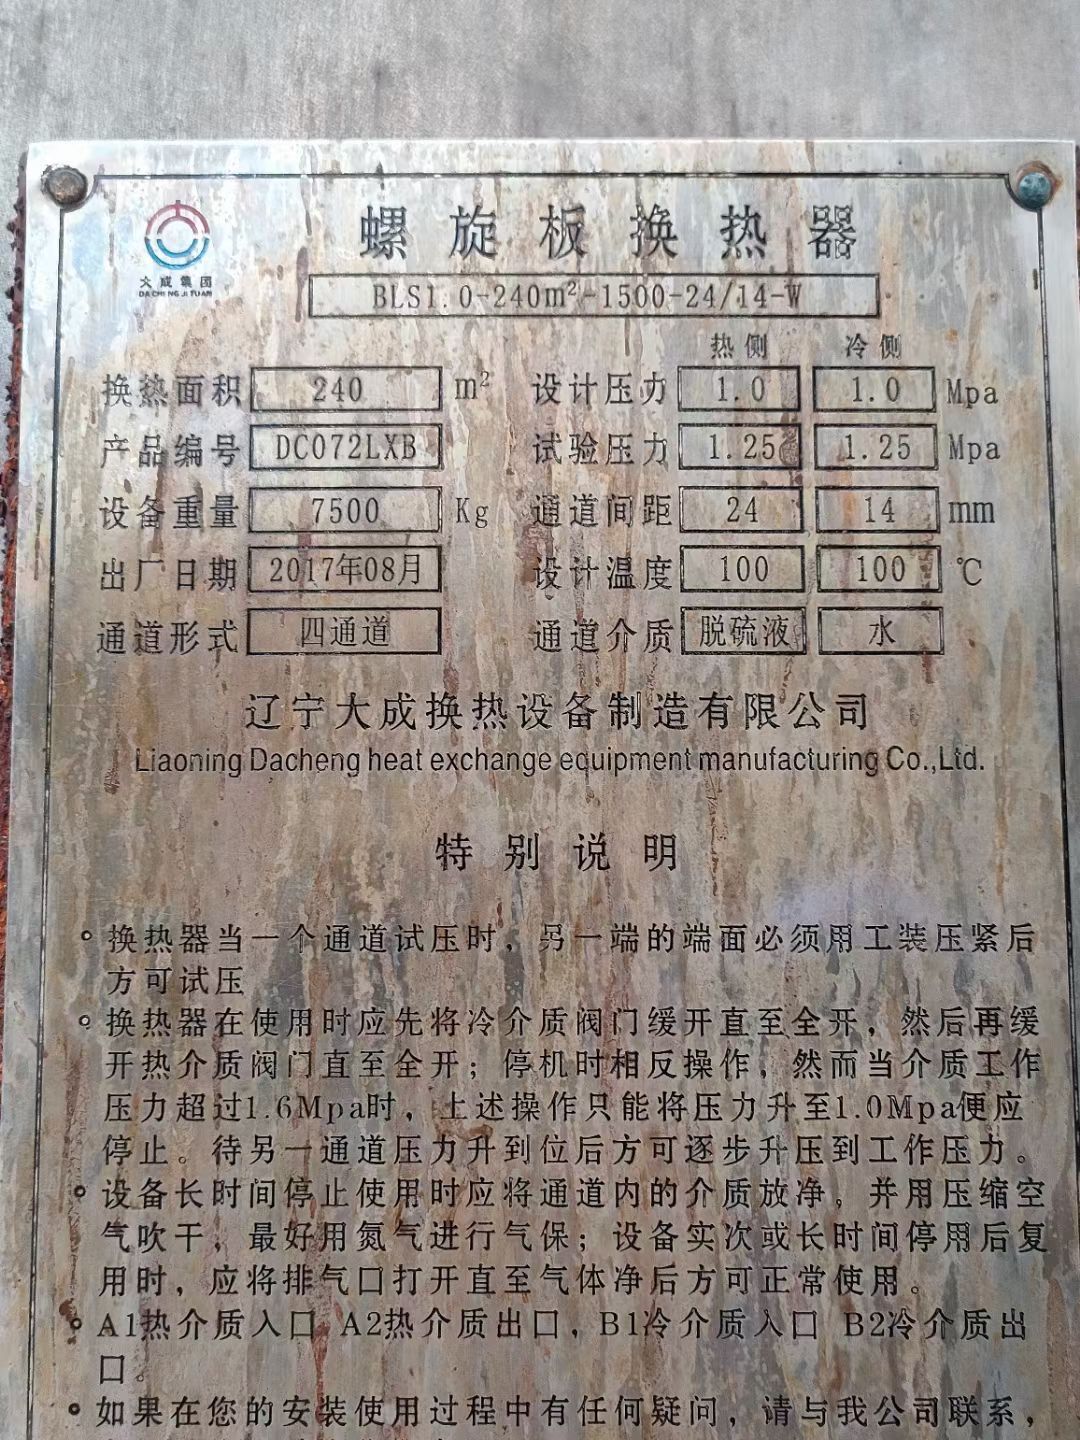 大成集团
DA CHENG JI TUAN
螺旋板换热器
BLS1.0-240m²-1500-24/14-W
热侧 冷侧
换热面积 240 m² 设计压力 1.0 1.0 Mpa
产品编号 DC072LXB 试验压力 1.25 1.25 Mpa
设备重量 7500 Kg 通道间距 24 14 mm
出厂日期 2017年08月 设计温度 100 100 ℃
通道形式 四通道 通道介质 脱硫液 水
辽宁大成换热设备制造有限公司
Liaoning Dacheng heat exchange equipment manufacturing Co.,Ltd.
特别说明
换热器当一个通道试压时，另一端的端面必须用工装压紧后
方可试压
换热器在使用时应先将冷介质阀门缓开直至全开，然后再缓
开热介质阀门直至全开；停机时相反操作，然而当介质工作
压力超过1.6Mpa时，上述操作只能将压力升至1.0Mpa便应
停止。待另一通道压力升到位后方可逐步升压到工作压力。
设备长时间停止使用时应将通道内的介质放净，并用压缩空
气吹干，最好用氮气进行气保；设备实次或长时间停用后复
用时，应将排气口打开直至气体净后方可正常使用。
A1热介质入口 A2热介质出口，B1冷介质入口 B2冷介质出
口。
如果在您的安装使用过程中有任何疑问，请与我公司联系，